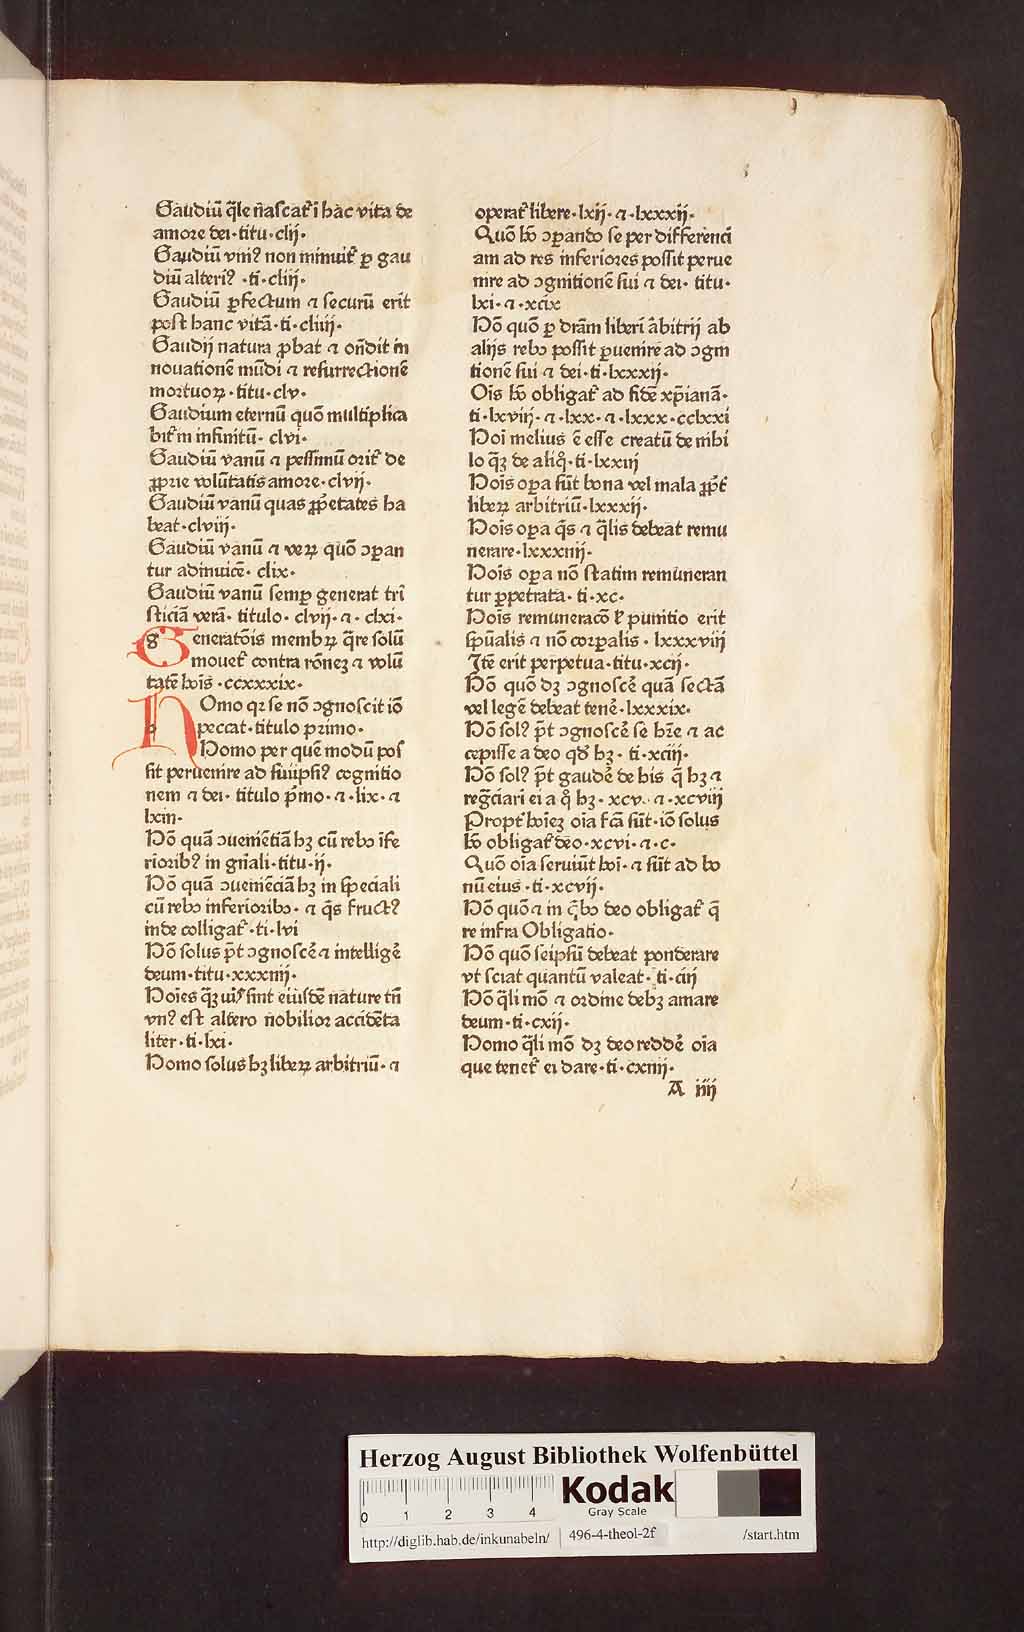 Gaudiū q̄le nascat᷑ ī hāc vita de
amore dei·titu·clij·
Gaudiū vniꝰ non minuit᷑ ꝑ gau
diū alteriꝰ ·ti·cliij·
Gaudiū ꝑfectum ⁊ securū erit
post hanc vitā·ti·cliiij·
Gaudij natura ꝓbat ⁊ oñdit in
nouationē mūdi ⁊ resurrectionē
mortuoꝝ·titu·clv·
Gaudium eternū quō multiplica
bit᷑ in infinitū· clvi·
Gaudiū vanū ⁊ pessimū orit᷑ de
ꝓprie volūtatis amore·clvij·
Gaudiū vanū quas ꝓp̄etates ha
beat·clviij·
Gaudiū vanū ⁊ veꝝ quō ↄꝑan
tur adinuicē· clix·
Gaudiū vanū semꝑ generat tri
sticiā verā· titulo· clvij·⁊· clxi·
Generatōis membꝝ q̄re solū
mouet᷑ contra rōnez ⁊ volū
tatē hoīs ·ccxxxix·
Homo qꝛ se nō ↄgnoscit iō
peccat·titulo primo·
Homo per quē modū pos
sit peruenire ad suiipsiꝰ cognitio
nem ⁊ dei· titulo p̄mo·⁊·lix·⁊
lxiii·
Hō quā ↄueniētiā hꝫ cū rebꝰ īfe
rioribꝰ in gn̄ali·titu·ij·
Hō quā ↄueniēciā hꝫ in speciali
cū rebꝰ inferioribꝰ· ⁊ q̄s fructꝰ
inde colligat᷑·ti·lvi
Hō solus pt̄ ↄgnoscē ⁊ intelligē
deum·titu·xxxiiij·
Hoies q̄ꝫuis sint eiusdē nature tn̄
vnꝰ est altero nobilior accidēta
liter·ti·lxi·
Homo solus hꝫ libeꝝ arbitriū·⁊
operat᷑ libere·lxij·⁊·lxxxij·
Quō hō ↄꝑando se per differenci
am ad res inferiores possit perue
nire ad ↄgnitionē sui ⁊ dei· titu·
lxi·⁊·xcix
Hō quō ꝑ dr̄am liberi arbitrij ab
alijs rebꝰ possit ꝑuenire ad ↄgni
tionē sui ⁊ dei·ti·lxxxij·
Ois hō obligat᷑ ad fidē xp̄ianā·
ti·lxviij·⁊·lxx·⁊·lxxx·cclxxi
Hoī melius ē esse creatū de nihi
lo q̄ꝫ de aliq̊·ti·lxxiij
Hois oꝑa sūt bona vel mala ꝓpt᷑
libeꝝ arbitriū·lxxxij·
Hois oꝑa q̄s ⁊ q̄lis debeat remu
nerare·lxxxiiij·
Hoīs oꝑa nō statim remuneran
tur ꝑpetrata· ti·xc·
Hoīs remuneracō ł punitio erit
sp̄ualis ⁊ nō corꝑalis · lxxxviij
Itē erit perpetua·titu·xcij·
Hō quō dꝫ ↄgnoscē quā sectā
vel legē debeat tenē·lxxxix·
Hō solꝰ pt̄ ↄgnoscē se hr̄e ⁊ ac
cepisse a deo qd̄ hꝫ · ti·xciij·
Hō solꝰ pt̄ gaudē de his q̄ hꝫ ⁊
regr̄ciari ei a q̊ hꝫ· xcv·⁊·xcviij
Propt᷑ hoiez oīa fc̄a sūt·iō solus
hō obligat᷑ deo·xcvi·⁊·c·
Quō oīa seruiūt hoī·⁊ sūt ad bo
nū eius·ti·xcvij·
Hō quō ⁊ in q̄bꝰ deo obligat᷑ q̄
re infra Obligatio·
Hō quō seipsū debeat ponderare
vt sciat quantū valeat·ti·ciij
Hō q̄li mō ⁊ ordine debꝫ amare
deum·ti·cxij·
Homo q̄li mō dꝫ deo reddē oīa
que tenet᷑ ei dare·ti·cxiiij·
A iiij
Herzog August Bibliothek Wolfenbüttel
0 1 2 3 4
Kodak
Gray Scale
http://diglib.hab.de/inkunabeln/ 496-4-theol-2f /start.htm